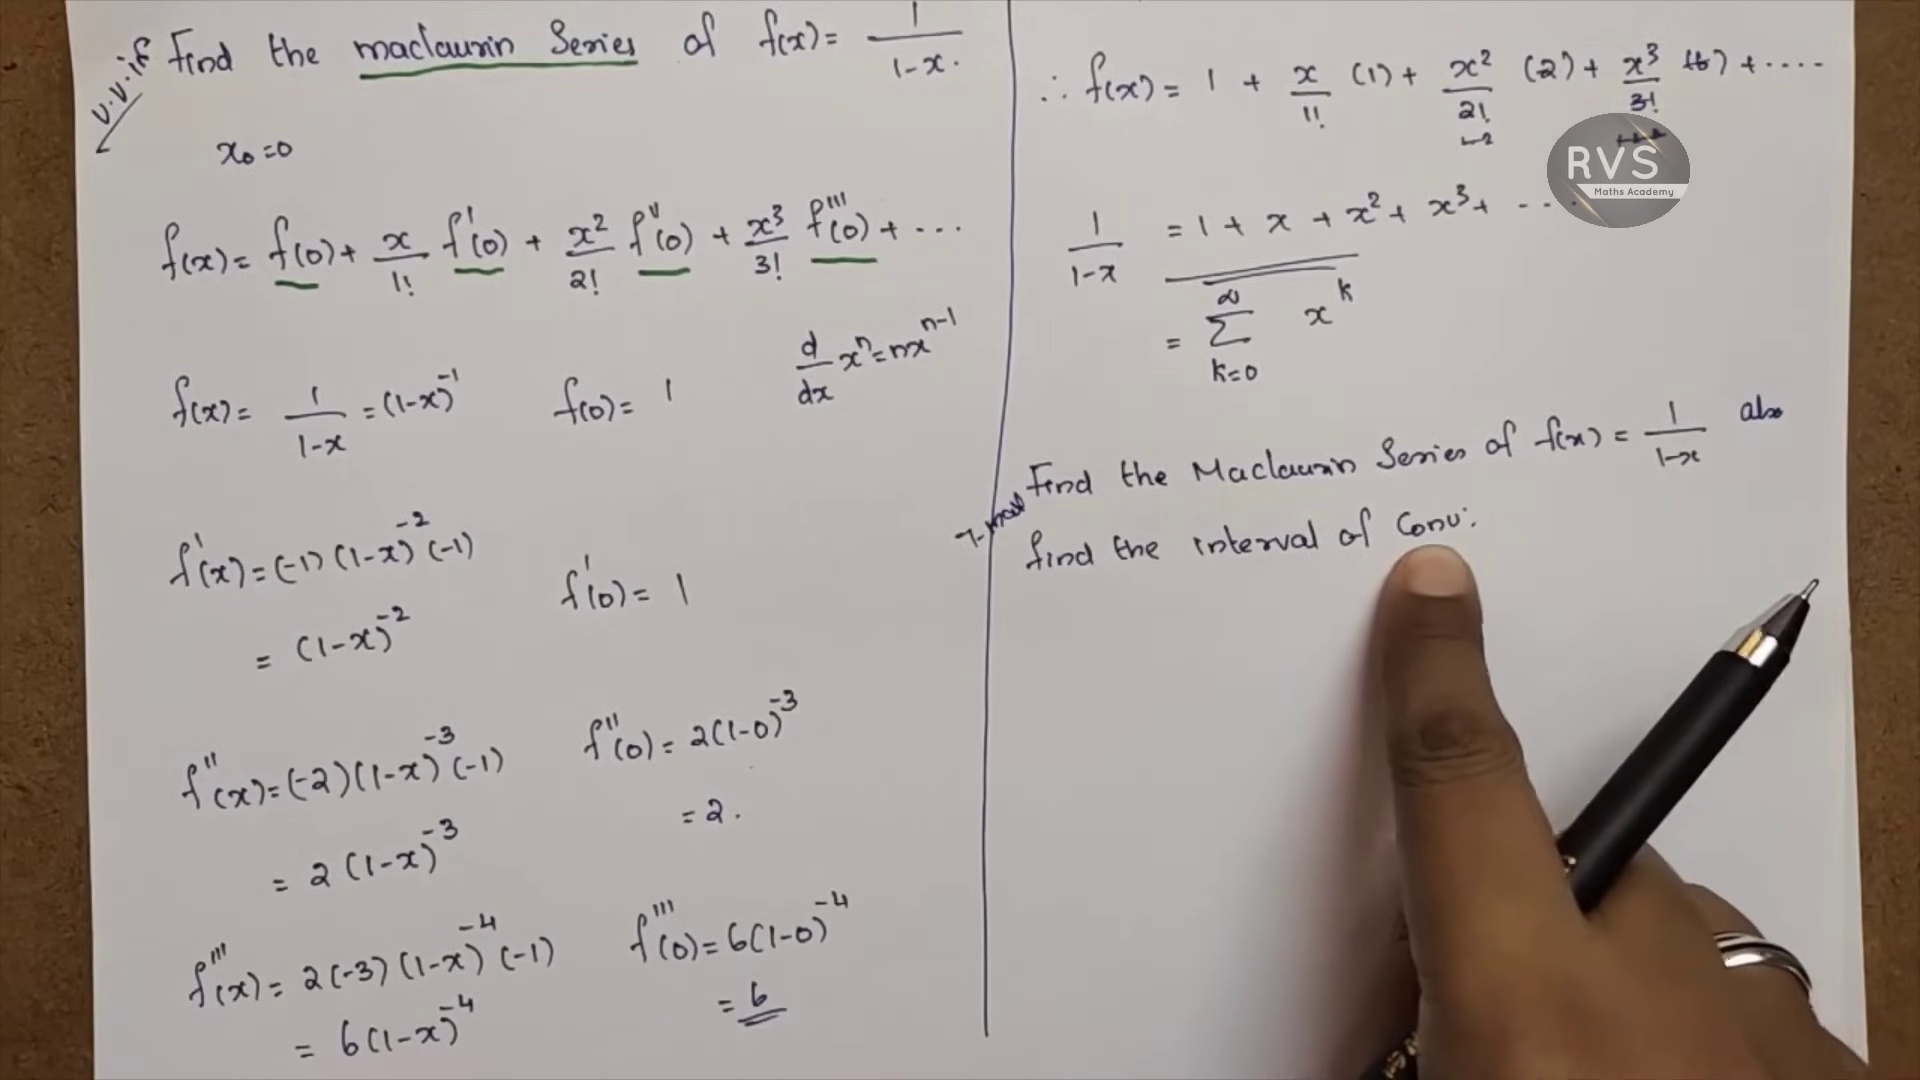 v.v.if
Find the maclaurin Series of f(x) = 1/1-x.
x₀=0
f(x) = f(0) + x/1! f'(0) + x²/2! f''(0) + x³/3! f'''(0) + ...
d/dx xⁿ = nxⁿ⁻¹
f(x) = 1/1-x = (1-x)⁻¹ f(0) = 1
f'(x) = (-1) (1-x)⁻² (-1)
= (1-x)⁻² f'(0) = 1
f''(x) = (-2)(1-x)⁻³ (-1) f''(0) = 2(1-0)⁻³
= 2 (1-x)⁻³ = 2.
f'''(x) = 2(-3) (1-x)⁻⁴ (-1) f'''(0) = 6(1-0)⁻⁴
= 6(1-x)⁻⁴ = 6
∴ f(x) = 1 + x/1! (1) + x²/2! (2) + x³/3! (6) + ....
RVS
Maths Academy
1/1-x = 1 + x + x² + x³ + ....
= ∞ Σ k=0 xᵏ
Find the Maclaurin Series of f(x) = 1/1-x also
find the interval of Conv: